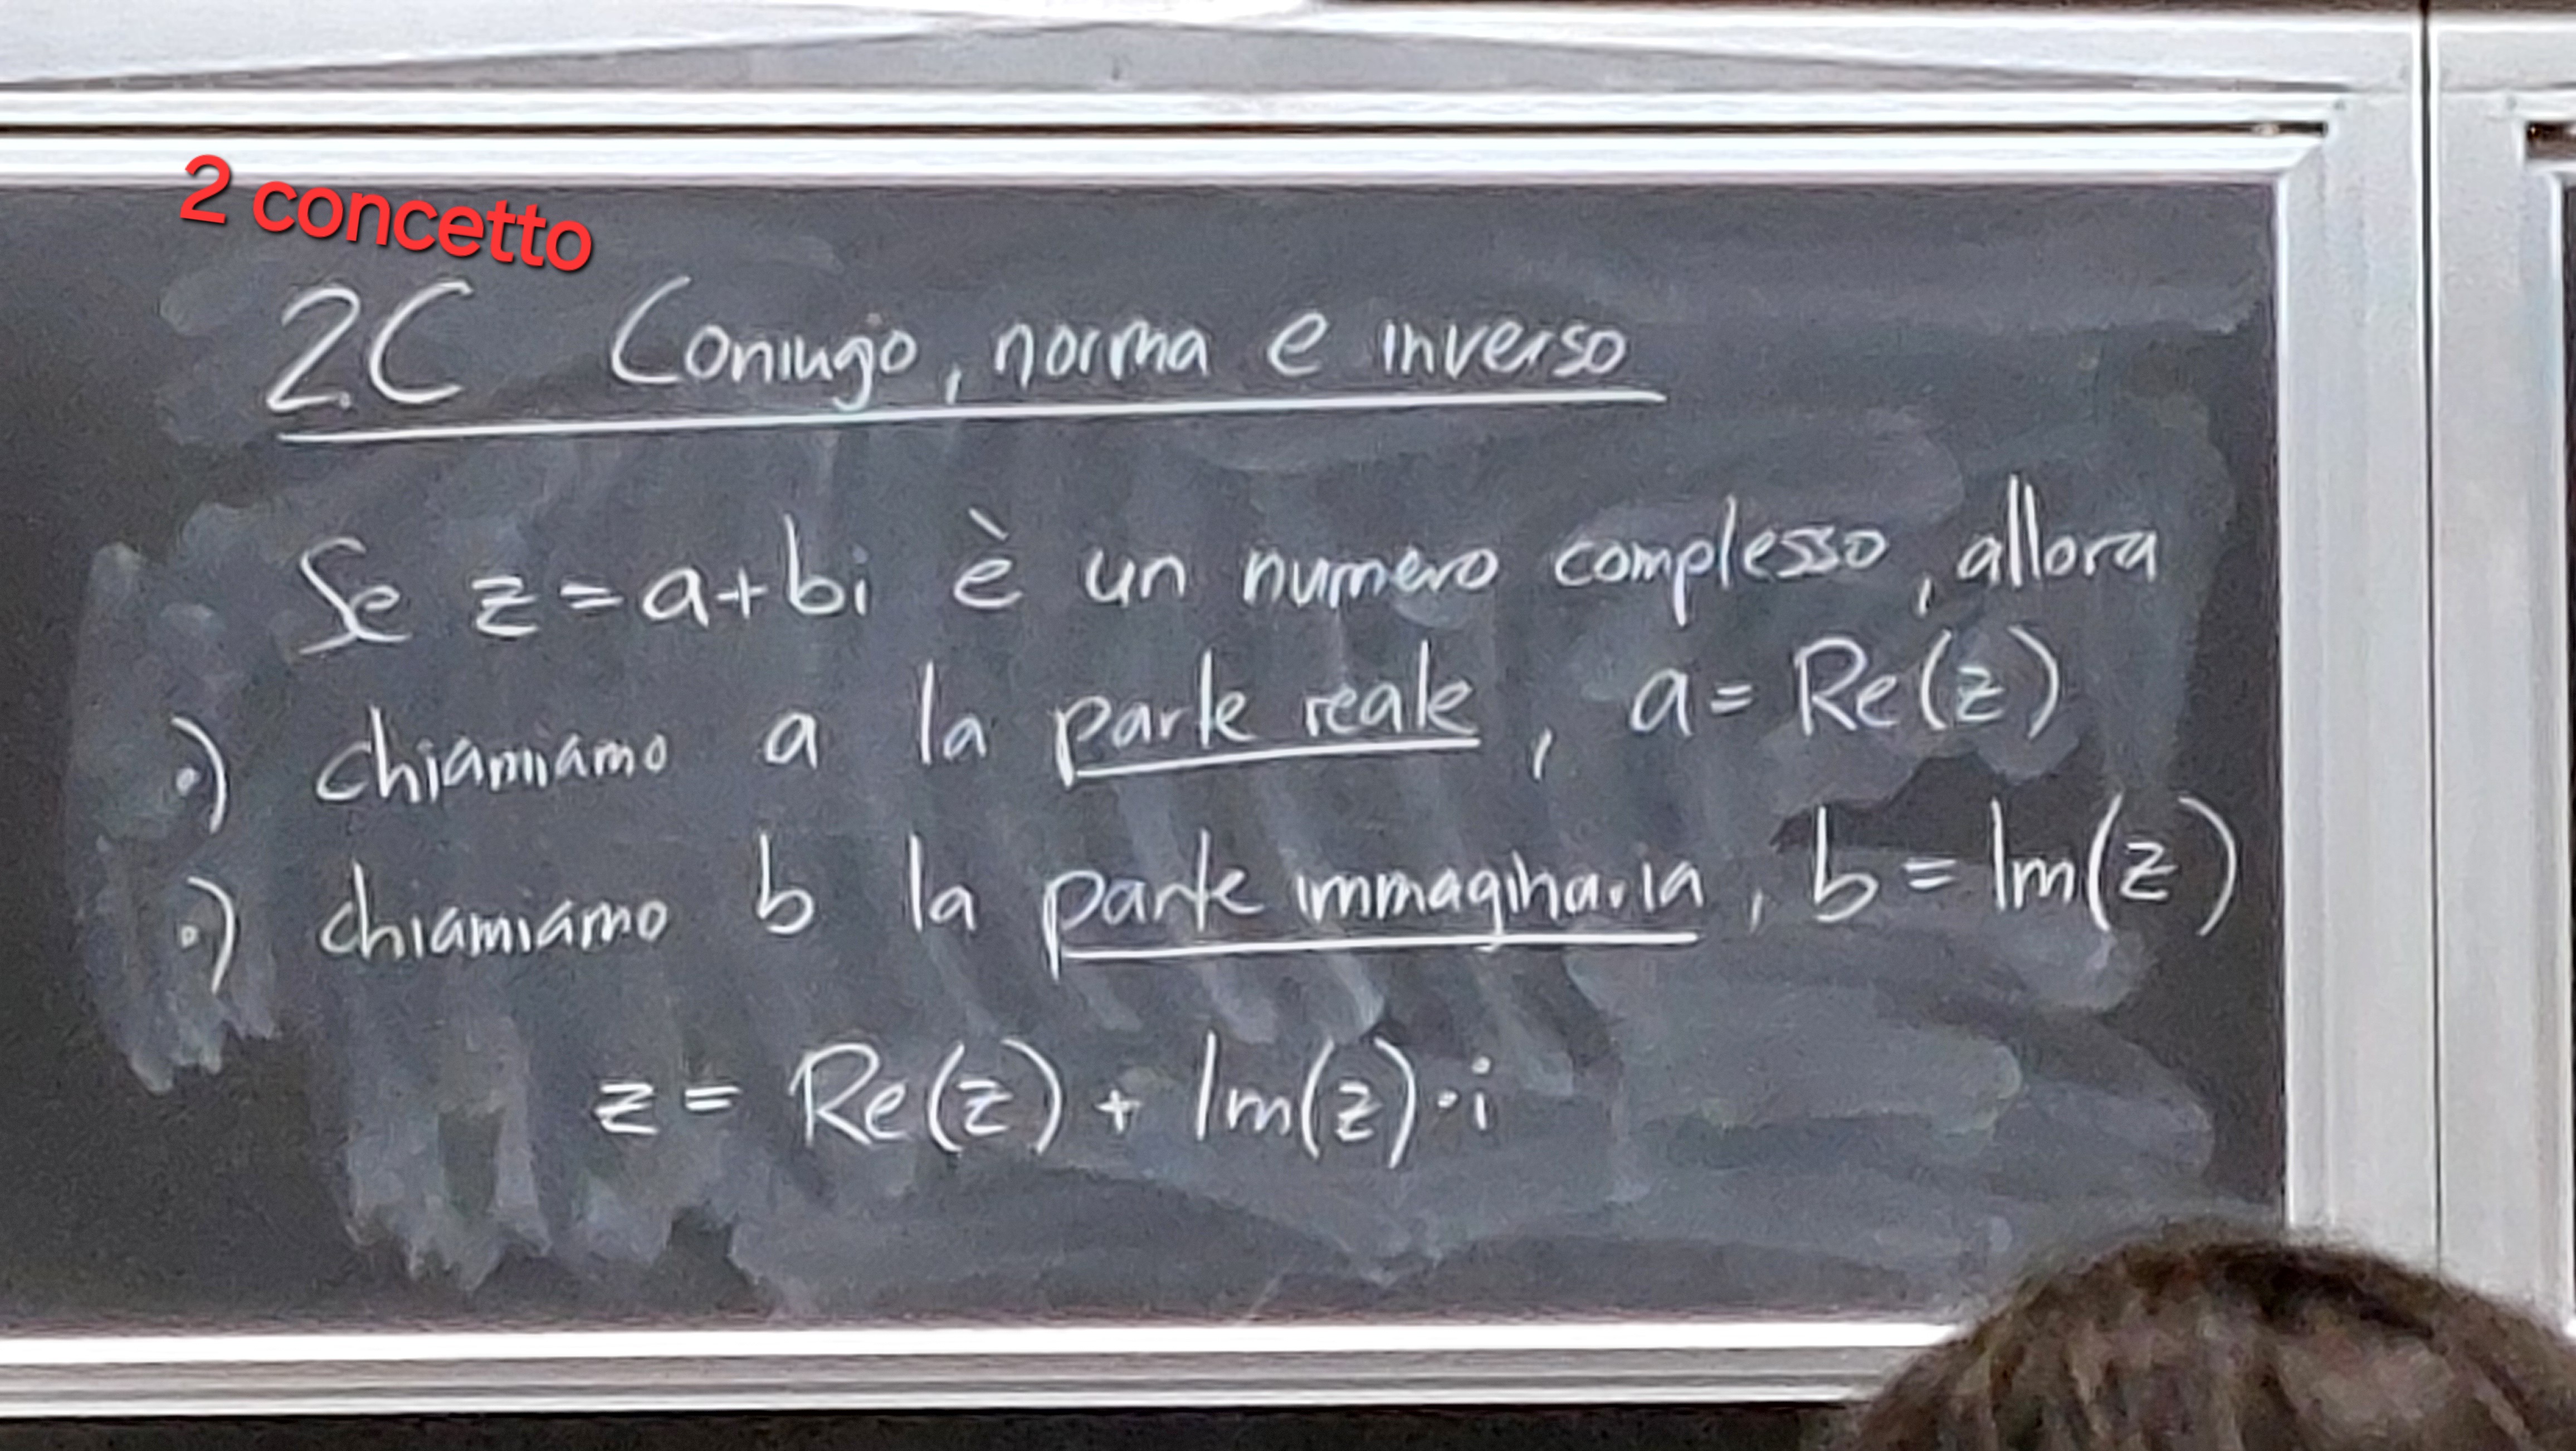 2 concetto
2.C Coniugo, norma e inverso
Se z = a + bi è un numero complesso, allora
·) chiamiamo a la parte reale, a = Re(z)
·) chiamiamo b la parte immaginaria, b = Im(z)
z = Re(z) + Im(z) · i